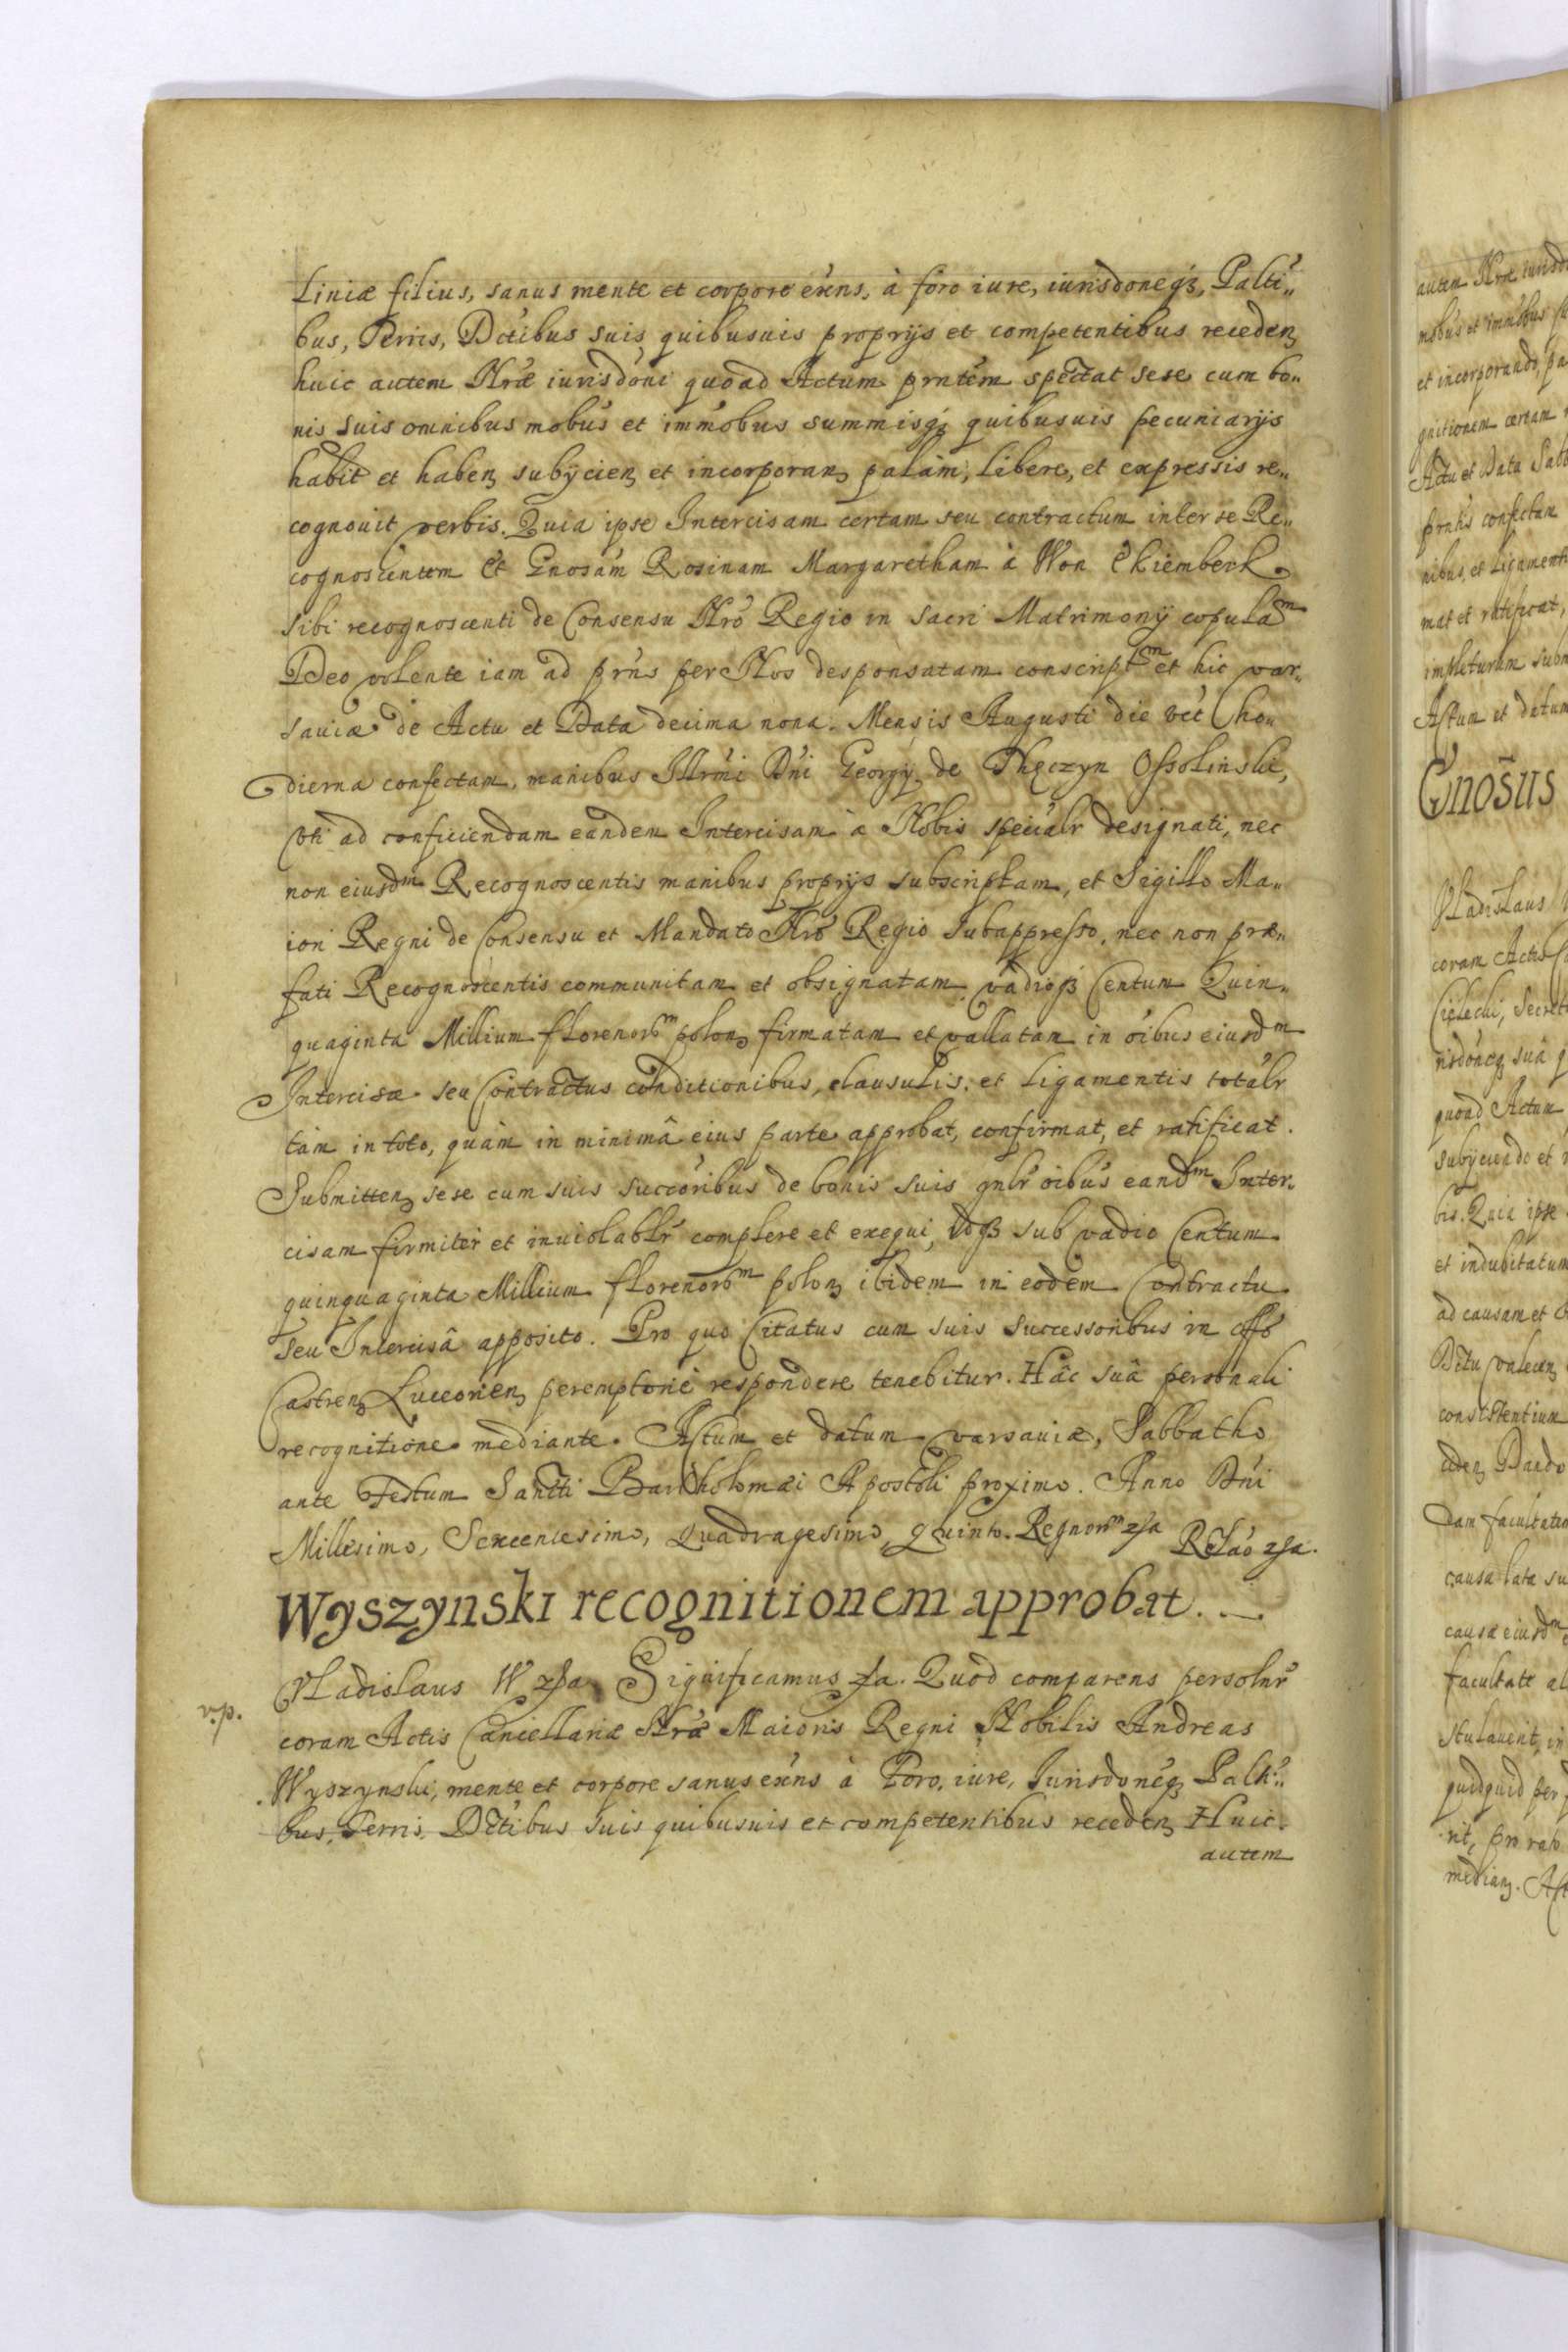 Liniæ filius, sanus mente et corpore exñs, à foro iure, iurisdoneq3, Palti„
bus, Terris, Dctibus suis quibusuis proprijs et competentibus receden
huic autem Nræ iurisdoni quoad Actum prntem spectat sese cum bo„
nis suis omnibus mobus et immobus summisq3 quibusuis pecuniarijs
habit et haben subijcien et incorporan palàm, libere, et expressis re„
cognouit verbis. Quia ipse Intercisam certam seu contractum inter se Re„
cognoscentem et Gnosam Rosinam Margaretham à Won Ekiemberk
sibi recognoscenti de Consensu Nro Regio in sacri Matrimonij copulaᵐ
Deo volente iam ad prns per Nos desponsatam conscriptᵐ et hic var„
sauiæ de Actu et Data decima nona Mensis Augusti die vēt ho„
dierna confectam, manibus Illrmi Dni Georgij de Thęczyn Ossolinski,
vti ad conficiendam eandem Intercisam à Nobis speciālr designati, nec
non eiusdᵐ Recognoscentis manibus proprijs subscriptam, et Sigillo Ma„
iori Regni de Consensu et Mandato Nro Regio subappresso, nec non præ„
fati Recognoscentis communitam et obsignatam vadioq3 Centum Quin„
quaginta Millium florenorᵐ polon firmatam et vallatam in oibus eiusdᵐ
Intercisæ seu Contractus conditionibus, clausulis, et ligamentis totalr
tàm in toto, quàm in minimâ eius parte approbat, confirmat, et ratificat.
Submitten sese cum suis succoribus de bonis suis gnlr oibus eandᵐ Inter„
cisam firmiter et inuiolablr complere et exequi, idq3 sub vadio Centum
quinquaginta Millium florenorᵐ polon ibidem in eodem Contractu
seu Intercisâ apposito. Pro quo Citatus cum suis successoribus in offo
Castren Luceorien peremptoriè respondere tenebitur. Hâc suâ personali
recognitione mediante. Actum et datum varsauiæ, Sabbatho
ante Festum Sancti Bartholomæi Apostoli proximo. Anno Dni
Millesimo, Sexcentesimo, Quadragesimo, Quinto. Regnorᵐ
Wyszynski recognitionem approbat.
Vladislaus W Significamus Quod comparens persolnr
v.p.
coram Actis Cancellariæ Nræ Maioris Regni Nobilis Andreas
Wyszynski, mente et corpore sanus exñs à Foro, iure, Iurisdoneq3 Palti„
bus, Terris, Dctibus suis quibusuis et competentibus receden Huic
autem
autem Nræ iurisdo
mobus et immobus su
et incorporando, pa
gnitionem certam
Actu et Data Sab
prntis confectam
nibus, et ligamenti
mat et ratificat,
impleturum subm
Actum et datum
Gnosus
Vladislaus
coram Actis Ca
Cielecki, Secret
risdoneq3 suâ q
quoad Actum
subijciendo et
bis. Quia ipse
et indubitatum
ad causam et
consistentium
dam facultatem
causa lata su
causæ eiusdᵐ
facultate al
stulauerit, in
quidquid per
rit, pro rato
median. Act